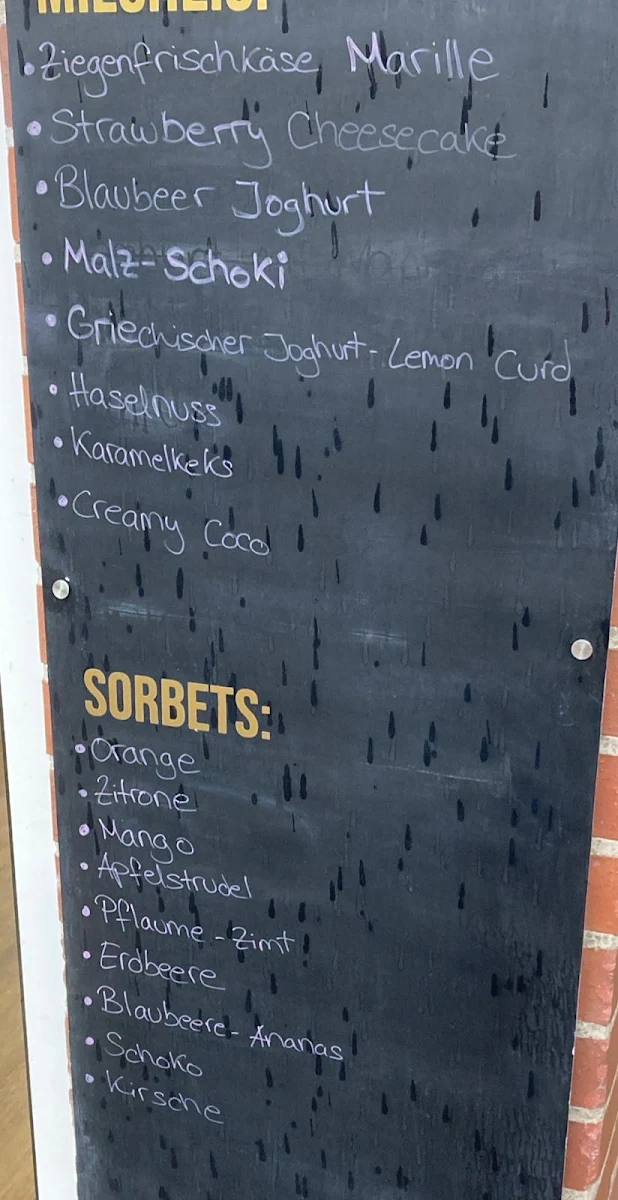 MILCHEIS:
• Ziegenfrischkäse, Marille
• Strawberry Cheesecake
• Blaubeer Joghurt
• Malz-Schoki
• Griechischer Joghurt-Lemon Curd
• Haselnuss
• Karamelkeks
• Creamy Coco
SORBETS:
• Orange
• Zitrone
• Mango
• Apfelstrudel
• Pflaume-Zimt
• Erdbeere
• Blaubeere-Ananas
• Schoko
• Kirsche